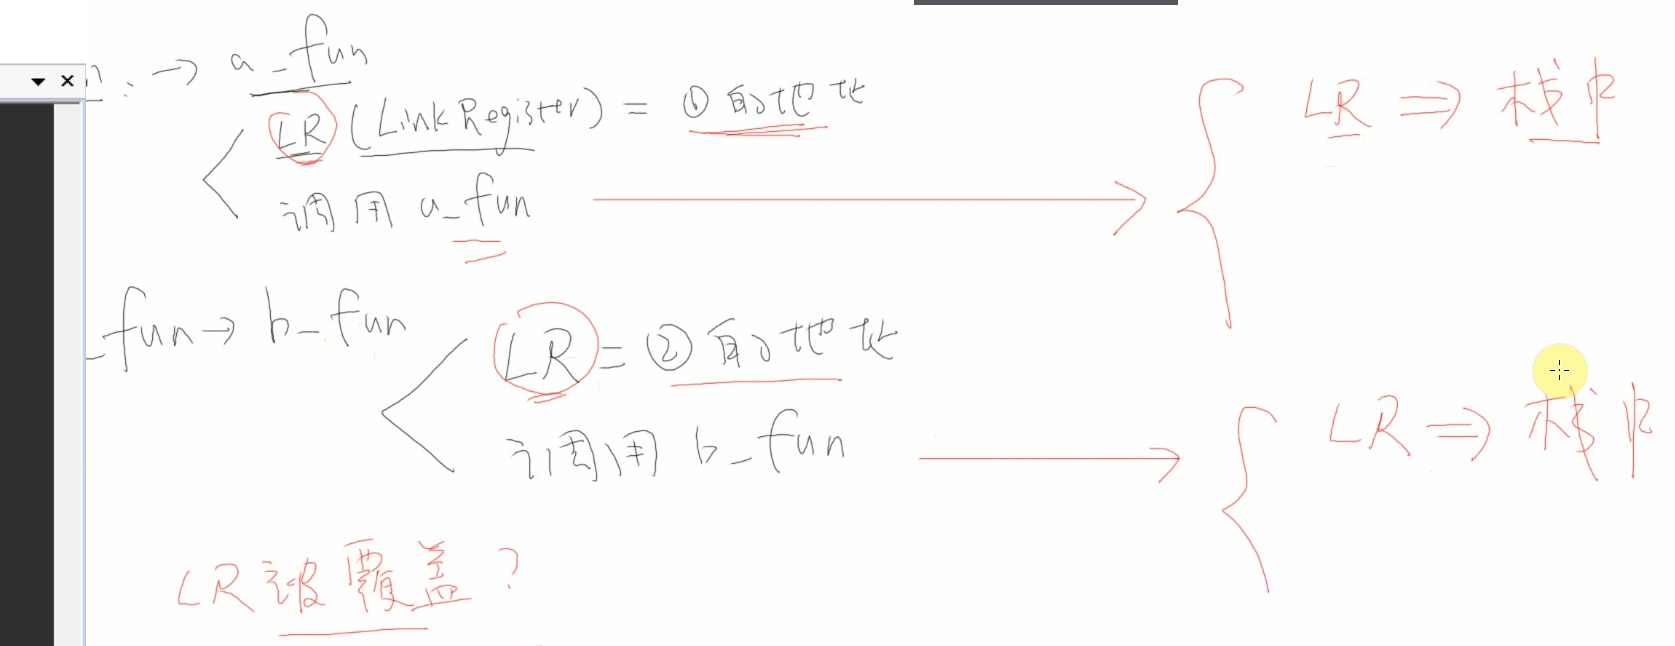 → a_fun
LR (LinkRegister) = ①的地址
调用 a_fun
LR ⇒ 栈中
_fun → b_fun
LR = ②的地址
调用 b_fun
LR ⇒ 栈中
LR被覆盖?